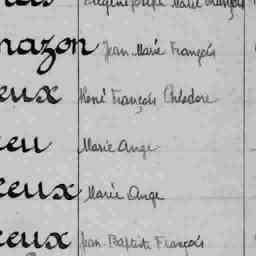 Eugène Joseph Marie François
mazon Jean Marie François
eux René François Théodore
eu Marie Ange
ceux Marie Ange
ceux Jean Baptiste François